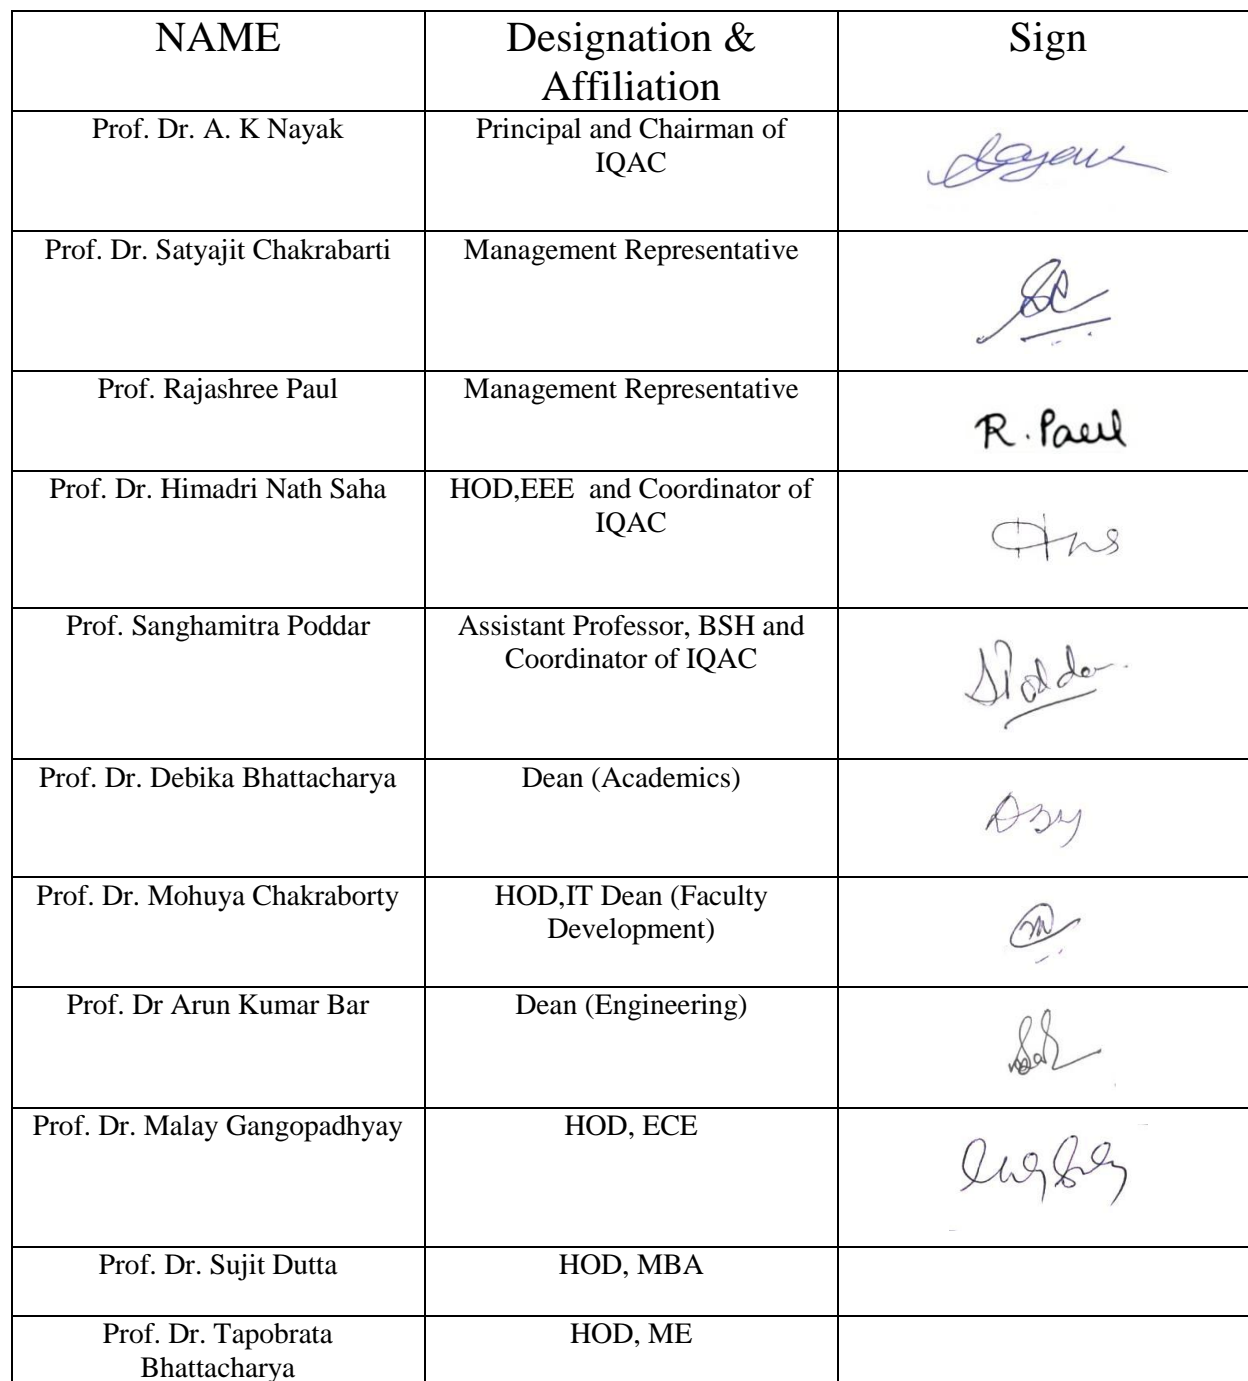 NAME
Designation &
Affiliation
Sign
Prof. Dr. A. K Nayak
Principal and Chairman of
IQAC
Prof. Dr. Satyajit Chakrabarti
Management Representative
Prof. Rajashree Paul
Management Representative
R. Paul
Prof. Dr. Himadri Nath Saha
HOD,EEE and Coordinator of
IQAC
Hns
Prof. Sanghamitra Poddar
Assistant Professor, BSH and
Coordinator of IQAC
SPoddar
Prof. Dr. Debika Bhattacharya
Dean (Academics)
Prof. Dr. Mohuya Chakraborty
HOD,IT Dean (Faculty
Development)
Prof. Dr Arun Kumar Bar
Dean (Engineering)
Prof. Dr. Malay Gangopadhyay
HOD, ECE
Prof. Dr. Sujit Dutta
HOD, MBA
Prof. Dr. Tapobrata
Bhattacharya
HOD, ME